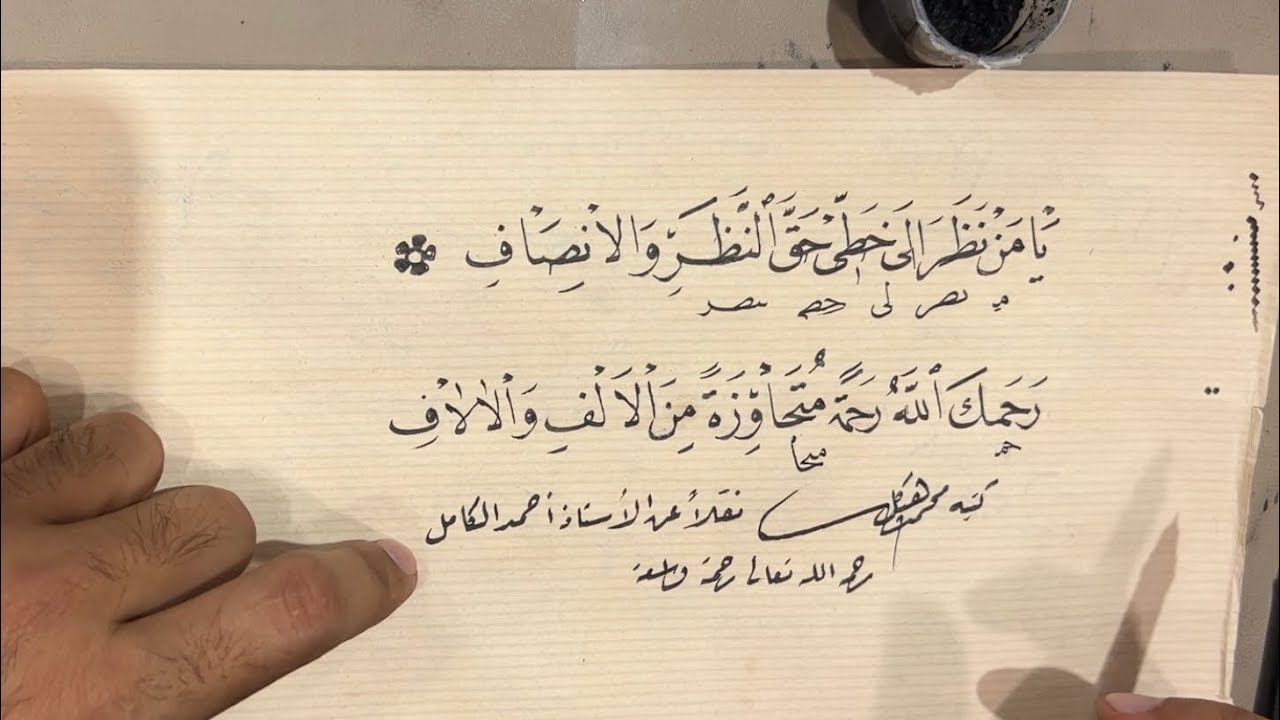 يَا مَنْ نَظَرَ إلَى خَطِّىْ حَقَّ ٱلنَّظَرِ وَالْانْصَافِ
مـ نصر لى حص ىىصر
رَحَمِكَ ٱللَّهُ رَحْمَةً مُتَجَاوِزَةً مِنَ ٱلْاَلْفِ وَٱلْاٰلَافِ
متجا
كتبه محمد هيكل نقلاً عن الأستاذ أحمد الكامل
رحمه الله تعالى رحمة واسعة